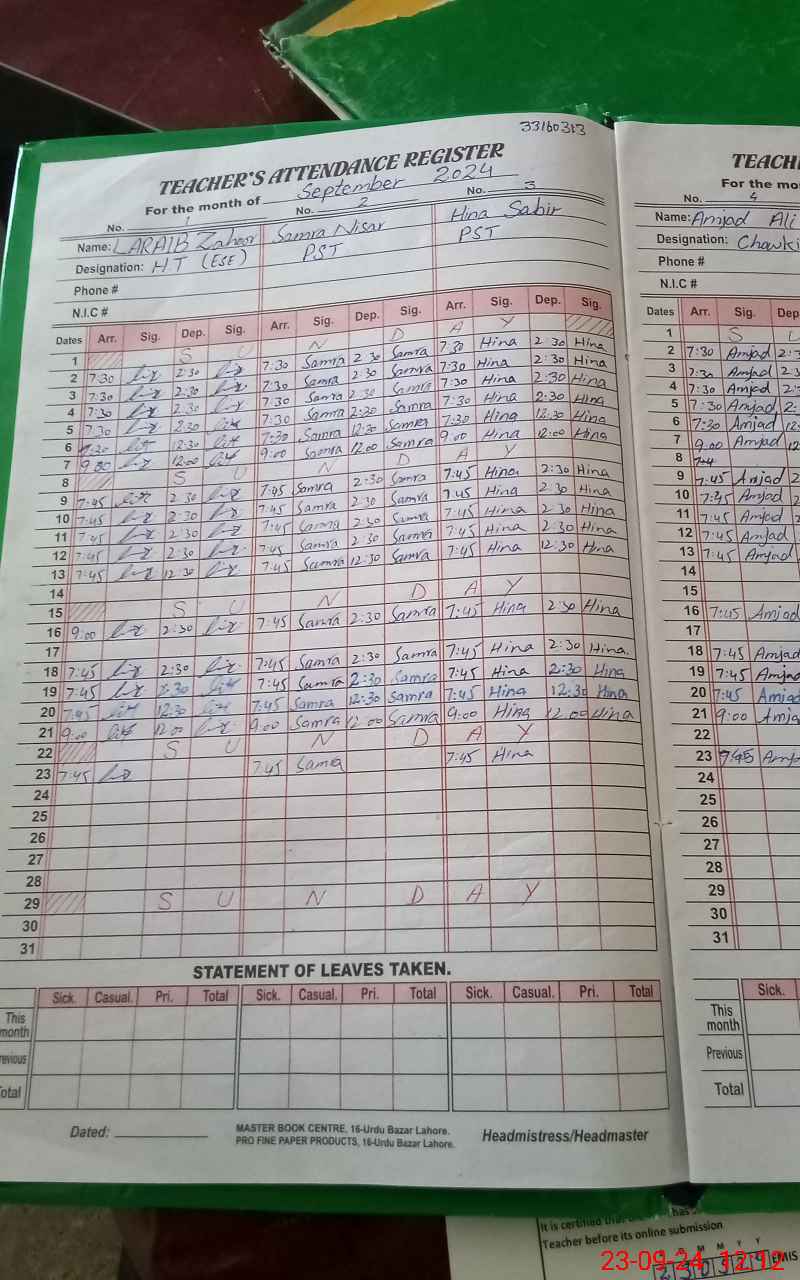 33160313
TEACHER'S ATTENDANCE REGISTER
For the month of September 2024
No. 1 No. 2 No. 3
Name: LARAIB Zahoor Samra Nisar Hina Sabir
Designation: H.T (ESE) PST PST
Phone #
N.I.C #
Dates Arr. Sig. Dep. Sig. Arr. Sig. Dep. Sig. Arr. Sig. Dep. Sig.
1 S U N D A Y
2 7:30 2:30 7:30 Samra 2:30 Samra 7:30 Hina 2:30 Hina
3 7:30 2:30 7:30 Samra 2:30 Samra 7:30 Hina 2:30 Hina
4 7:30 2:30 7:30 Samra 2:30 Samra 7:30 Hina 2:30 Hina
5 7:30 2:30 7:30 Samra 2:30 Samra 7:30 Hina 2:30 Hina
6 7:30 12:30 7:30 Samra 12:30 Samra 7:30 Hina 12:30 Hina
7 9:00 12:00 9:00 Samra 12:00 Samra 9:00 Hina 12:00 Hina
8 S U N D A Y
9 7:45 2:30 7:45 Samra 2:30 Samra 7:45 Hina 2:30 Hina
10 7:45 2:30 7:45 Samra 2:30 Samra 7:45 Hina 2:30 Hina
11 7:45 2:30 7:45 Samra 2:30 Samra 7:45 Hina 2:30 Hina
12 7:45 2:30 7:45 Samra 2:30 Samra 7:45 Hina 2:30 Hina
13 7:45 12:30 7:45 Samra 12:30 Samra 7:45 Hina 12:30 Hina
14
15 S U N D A Y
16 9:00 2:30 7:45 Samra 2:30 Samra 7:45 Hina 2:30 Hina
17
18 7:45 2:30 7:45 Samra 2:30 Samra 7:45 Hina 2:30 Hina.
19 7:45 2:30 7:45 Samra 2:30 Samra 7:45 Hina 2:30 Hina
20 7:45 12:30 7:45 Samra 12:30 Samra 7:45 Hina 12:30 Hina
21 9:00 12:00 9:00 Samra 12:00 Samra 9:00 Hina 12:00 Hina
22 S U N D A Y
23 7:45 7:45 Samra 7:45 Hina
24
25
26
27
28
29 S U N D A Y
30
31
STATEMENT OF LEAVES TAKEN.
Sick. Casual. Pri. Total Sick. Casual. Pri. Total Sick. Casual. Pri. Total
This month
Previous
Total
Dated:
MASTER BOOK CENTRE, 16-Urdu Bazar Lahore.
PRO FINE PAPER PRODUCTS, 16-Urdu Bazar Lahore.
Headmistress/Headmaster
TEACH
For the mo
No. 4
Name: Amjad Ali
Designation: Chowki
Phone #
N.I.C #
Dates Arr. Sig. Dep
1 S U
2 7:30 Amjad 2:
3 7:30 Amjad 2:
4 7:30 Amjad 2:
5 7:30 Amjad 2:
6 7:30 Amjad 12:
7 9:00 Amjad 12
8 7:4
9 7:45 Amjad 2
10 7:45 Amjad 2
11 7:45 Amjad 2
12 7:45 Amjad 2
13 7:45 Amjad
14
15
16 7:45 Amjad
17
18 7:45 Amjad
19 7:45 Amjad
20 7:45 Amjad
21 9:00 Amja
22
23 7:45 Amja
24
25
26
27
28
29
30
31
Sick.
This month
Previous
Total
It is certified that has
Teacher before its online submission
M M Y Y
EMIS
23-09-24 12:12